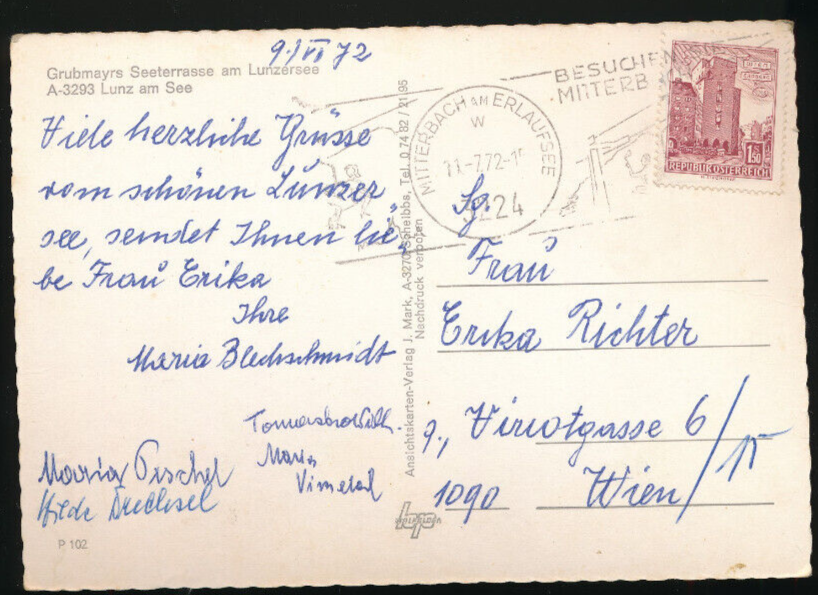 9./VI 72
Grubmayrs Seeterrasse am Lunzersee
A-3293 Lunz am See
Viele herzliche Grüsse
vom schönen Lunzer
see, sendet Ihnen lie-
be Frau Erika
Ihre
Maria Blechschmidt
Maria
Maria
Hilde Drechsel
P 102
Ansichtskarten-Verlag J. Mark, A-3270 Scheibbs, Tel. 0 74 82 / 21 95
Nachdruck verboten
MITTERBACH AM ERLAUFSEE
W
11.-7.72-1
3224
BESUCHEN
MITTERB
1.50
REPUBLIK ÖSTERREICH
Frau
Erika Richter
9., Viriotgasse 6/15
1090 Wien